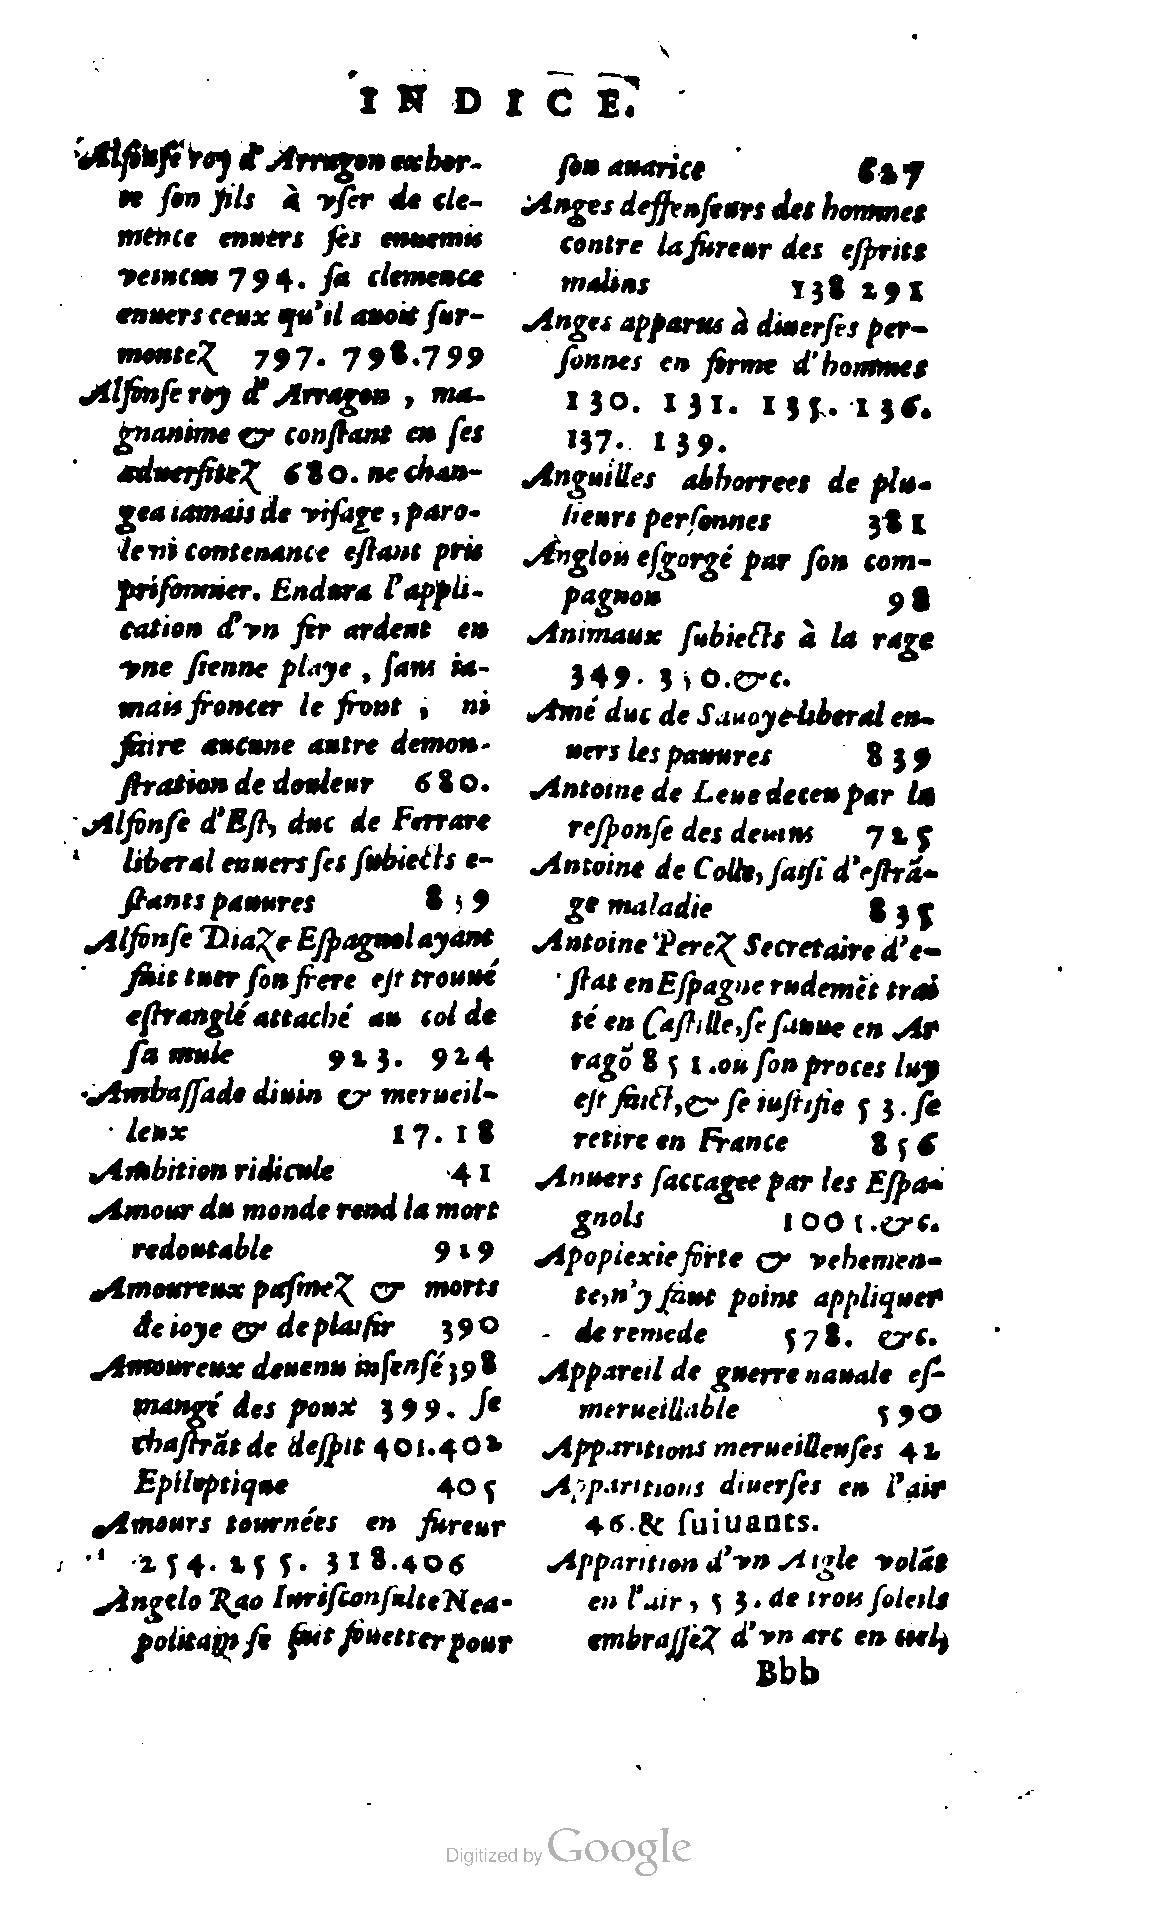 INDICE.
Alfonse roy d'Arragon exhor-
te son fils à vser de cle-
mence enuers ses ennemis
veincus 794. sa clemence
enuers ceux qu'il auoit sur-
montez 797. 798.799
Alfonse roy d'Arragon, ma-
gnanime & constant en ses
aduersitez 680. ne chan-
gea iamais de visage, paro-
le ni contenance estant pris
prisonnier. Endura l'appli-
cation d'vn fer ardent en
vne sienne playe, sans ia-
mais froncer le front, ni
faire aucune autre demon-
stration de douleur 680.
Alfonse d'Est, duc de Ferrare
liberal enuers ses subiects e-
stants pauures 839
Alfonse Diaze Espagnol ayant
fait tuer son frere est trouué
estranglé attaché au col de
sa mule 923. 924
Ambassade diuin & merueil-
leux 17.18
Ambition ridicule 41
Amour du monde rend la mort
redoutable 919
Amoureux pasmez & morts
de ioye & de plaisir 390
Amoureux deuenu insensé 398
mangé des poux 399. se
chastrāt de despit 401.402
Epileptique 405
Amours tournées en fureur
254. 255. 318.406
Angelo Rao Iurisconsulte Nea-
politain se fait fouetter pour
son auarice 627
Anges deffenseurs des hommes
contre la fureur des esprits
malins 138 291
Anges apparus à diuerses per-
sonnes en forme d'hommes
130. 131. 135. 136.
137. 139.
Anguilles abhorrees de plu-
sieurs personnes 381
Anglois esgorgé par son com-
pagnon 98
Animaux subiects à la rage
349. 350.&c.
Amé duc de Sauoye liberal en-
uers les pauures 839
Antoine de Leue deceu par la
response des deuins 725
Antoine de Colle, saisi d'estrā-
ge maladie 835
Antoine Perez Secretaire d'e-
stat en Espagne rudemēt trai
té en Castille, se sauue en Ar
ragō 851.ou son proces luy
est faict, & se iustifie 53. se
retire en France 856
Anuers saccagee par les Espa-
gnols 1001.&c.
Apoplexie forte & vehemen-
te, n'y faut point appliquer
de remede 578. &c.
Appareil de guerre nauale es-
merueillable 590
Apparitions merueilleuses 42
Apparitions diuerses en l'air
46.& suiuants.
Apparition d'vn Aigle volāt
en l'air, 53. de trois soleils
embrassez d'vn arc en ciel,
Bbb
Digitized by Google